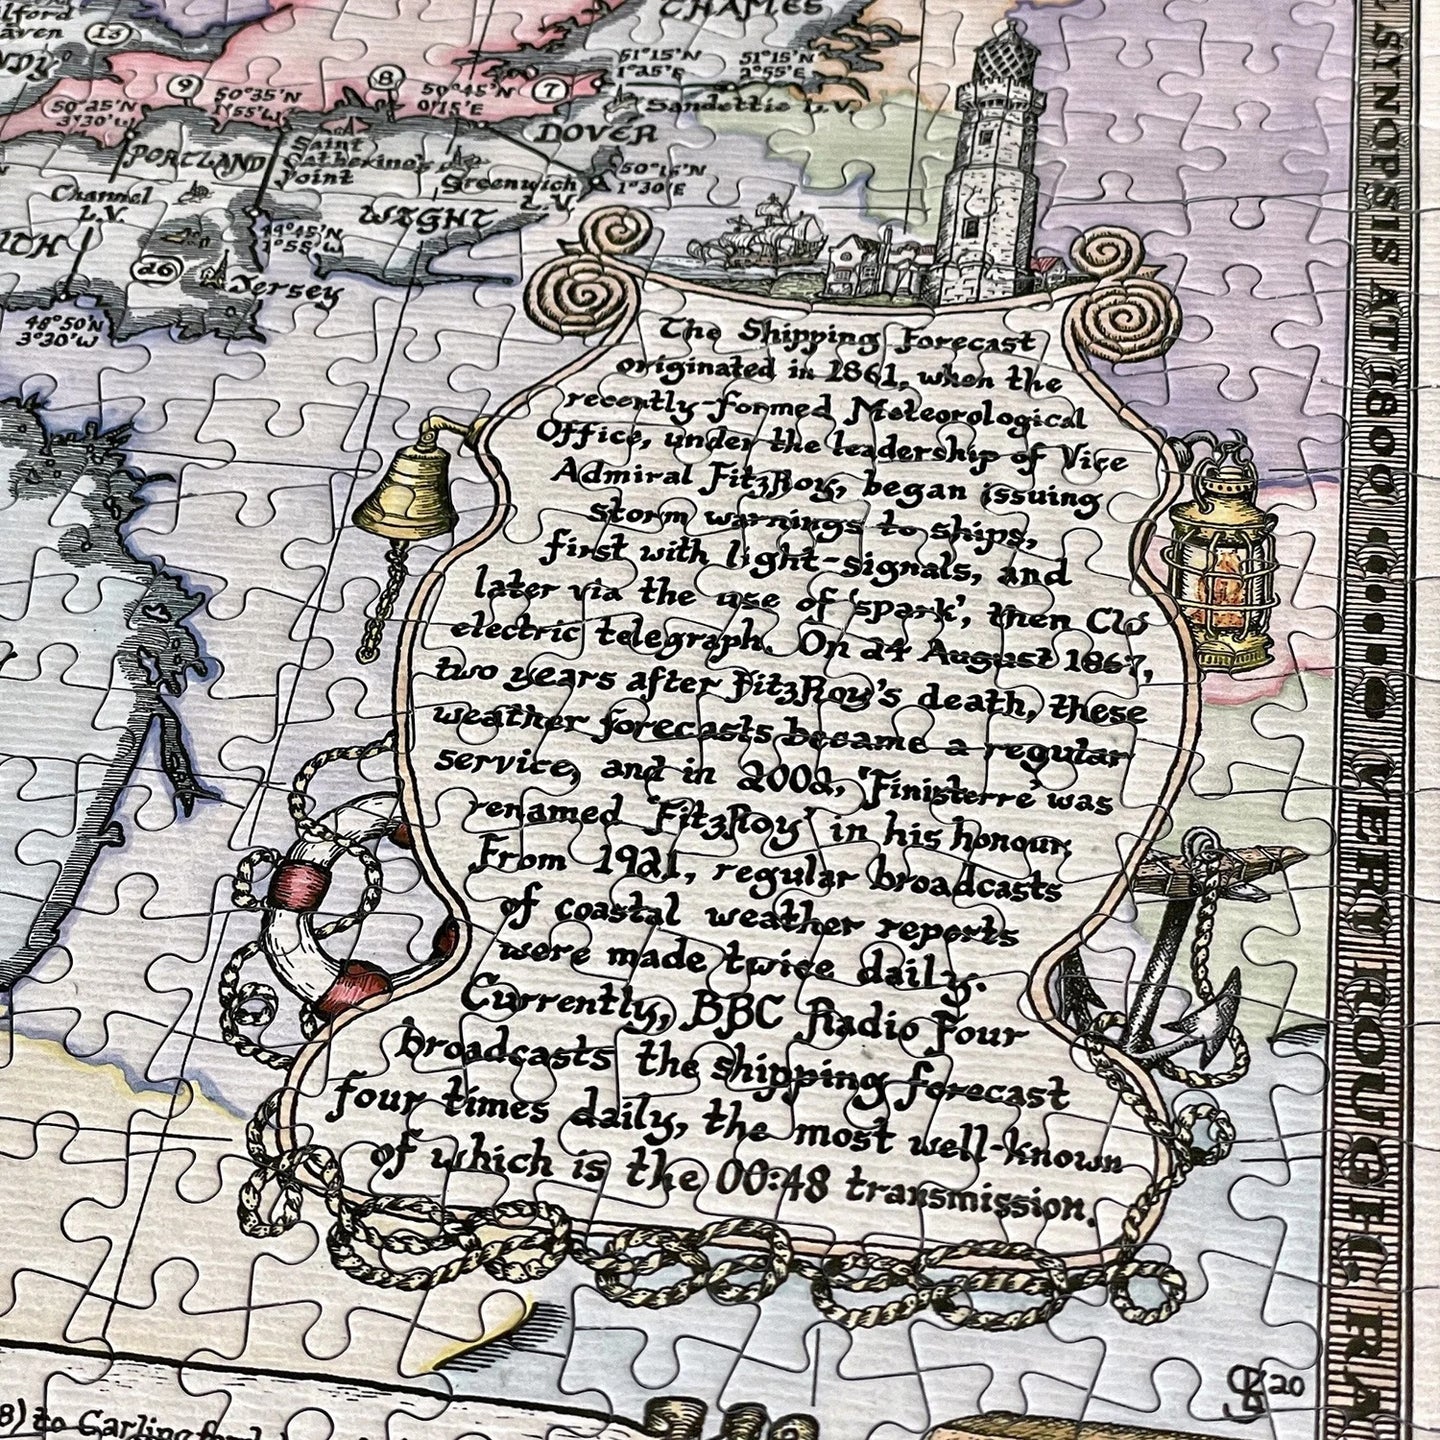 CHAMES
lford
aven 13
NDY
9
8
7
50°25'N
3°30'W
50°35'N
1°55'W
50°45'N
0°15'E
51°15'N
1°25'E
51°15'N
2°55'E
Sandettie L.V.
DOVER
PORTLAND
Saint
Catherine's
Point
Greenwich
L.V.
50°15'N
1°30'E
Channel
L.V.
WIGHT
49°45'N
1°55'W
26
Jersey
48°50'N
3°30'W
The Shipping Forecast
originated in 1861, when the
recently-formed Meteorological
Office, under the leadership of Vice
Admiral FitzRoy, began issuing
storm warnings to ships,
first with light-signals, and
later via the use of 'spark', then
electric telegraph. On 24 August 1867,
two years after FitzRoy's death, these
weather forecasts became a regular
service, and in 2002, 'Finisterre' was
renamed 'FitzRoy' in his honour.
From 1921, regular broadcasts
of coastal weather reports
were made twice daily.
Currently, BBC Radio Four
broadcasts the shipping forecast
four times daily, the most well-known
of which is the 00:48 transmission.
20
8) to Carlingford
SYNOPSIS AT 1800 ..... VERY ROUGH. RA